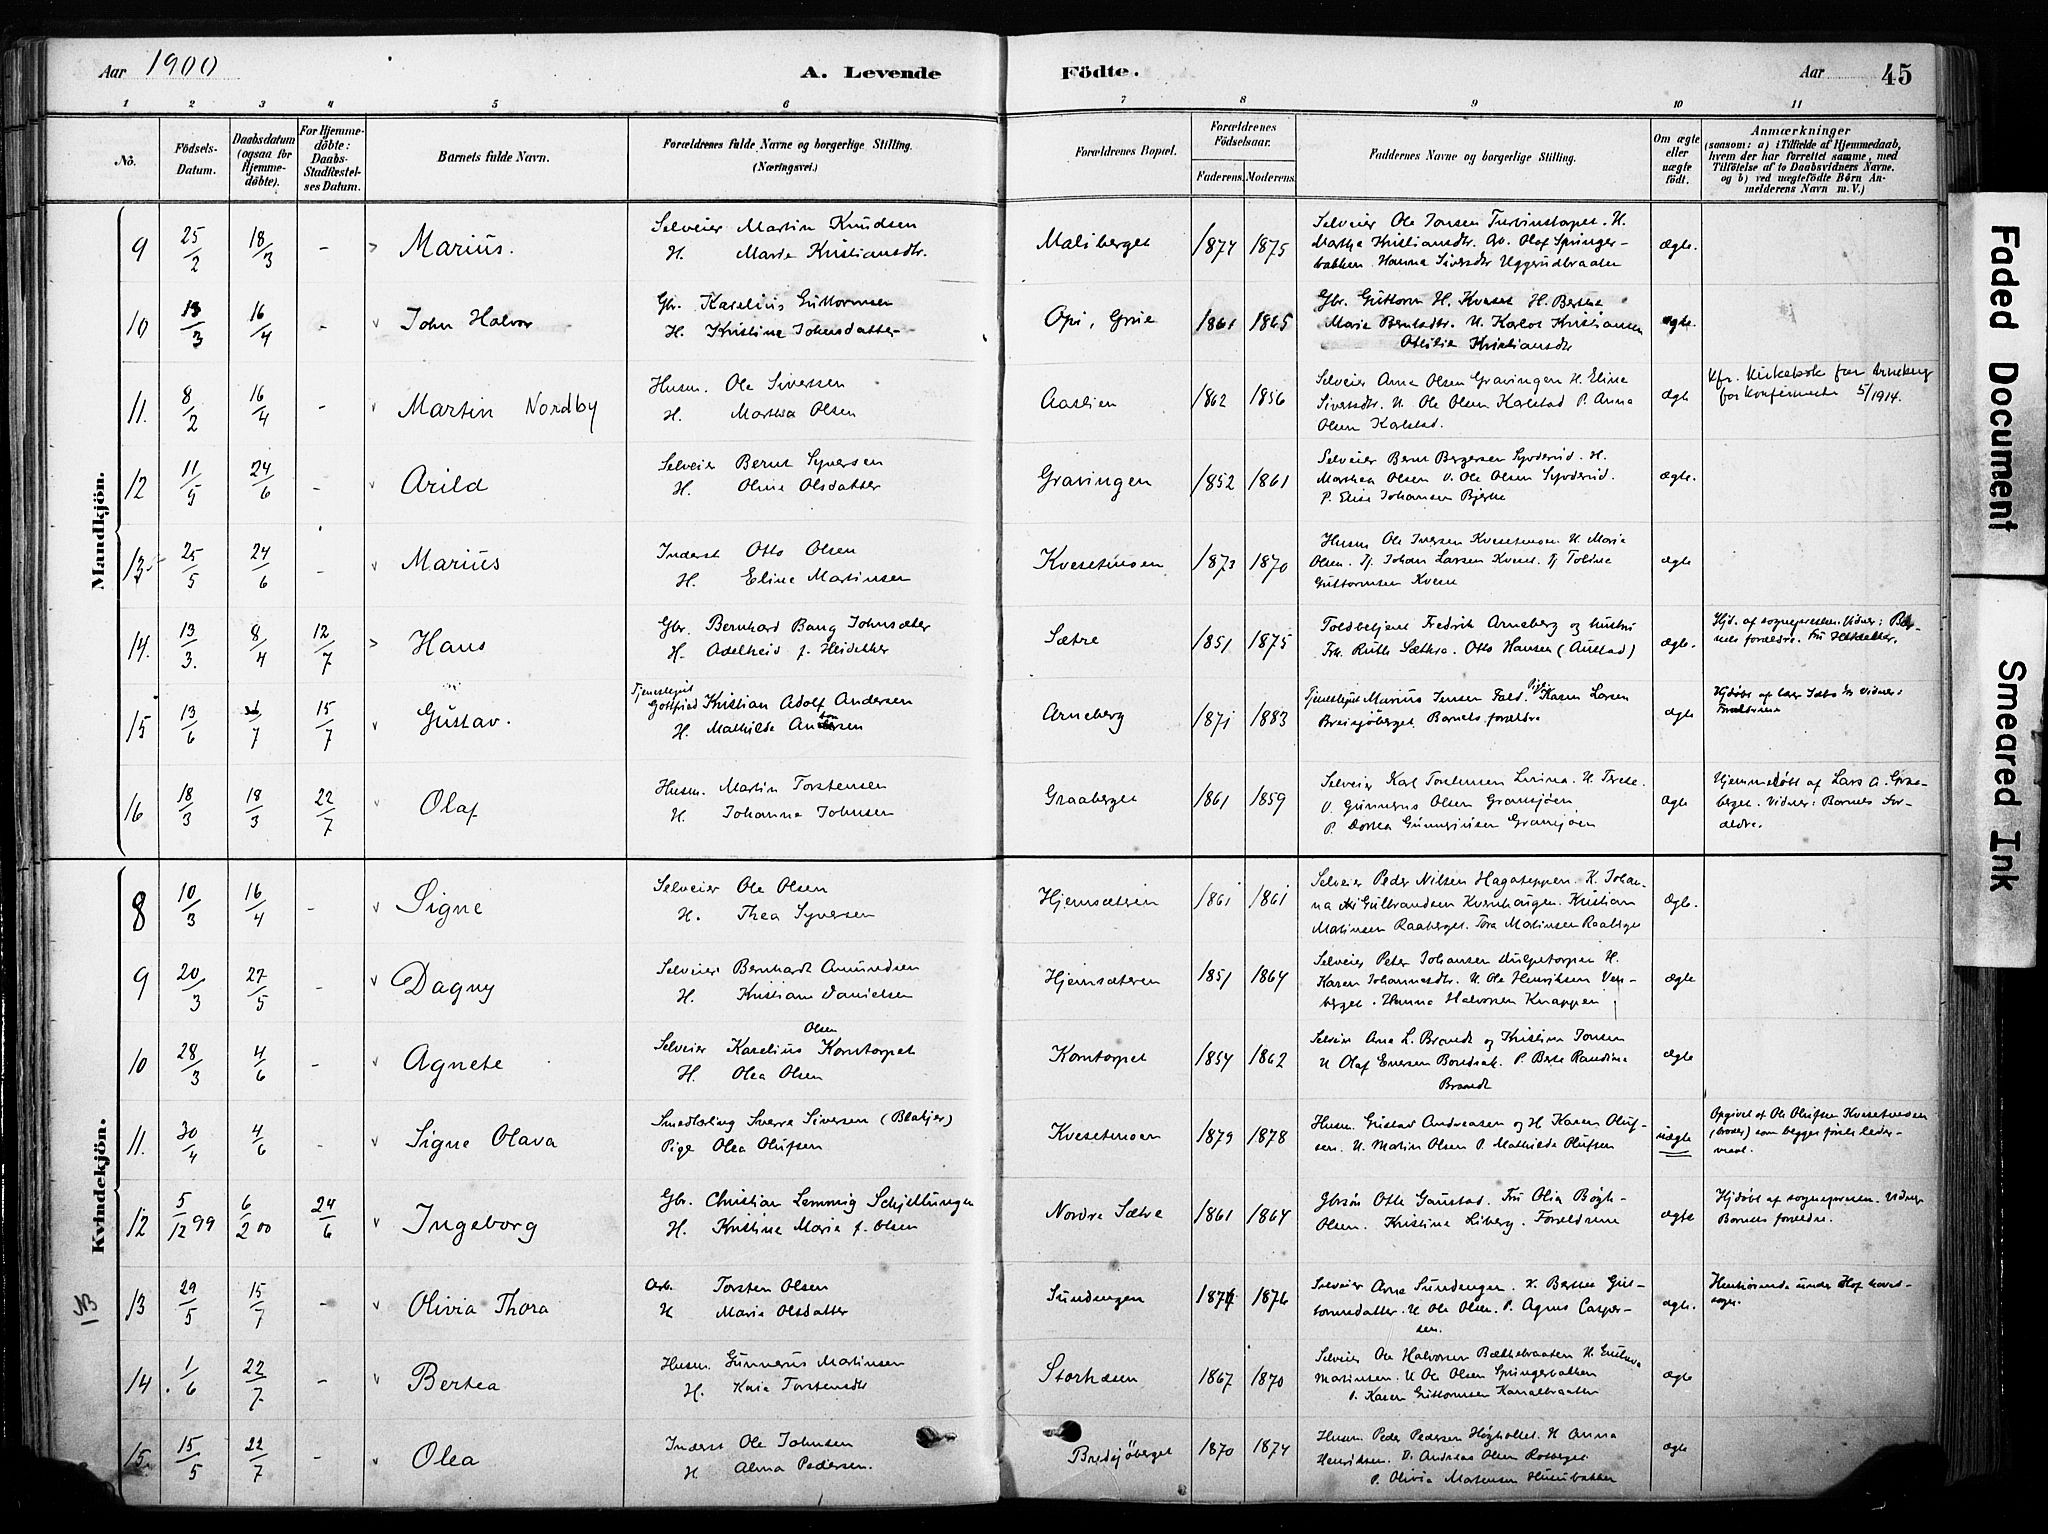 Aar 1900 A. Levende Födte. Aar 45
1 2 3 4 5 6 7 8 9 10 11
Nô. Födsels-Datum. Daabsdatum (ogsaa for Hjemme-döbte). For Hjemme-döbte: Daabs-Stadfæstel-ses Datum. Barnets fulde Navn. Forældrenes fulde Navne og borgerlige Stilling. (Næringsvei.) Forældrenes Bopæl. Forældrenes Födselsaar. Faderens. Moderens. Faddernes Navne og borgerlige Stilling. Om ægte eller uægte födt. Anmærkninger (saasom: a) i Tilfælde af Hjemmedaab, hvem der har forrettet samme, med Tilföielse af to Daabsvidners Navne. og b) ved uægtefödte Börn An-melderens Navn m. V.)
Mandkjön.
9 25/2 18/3 - Marius. Selveier Martin Knudsen
H. Marie Kristiansdtr. Maliberget 1874 1875 Selveier Ole Jonsen H.
Martha Kristiansdtr. Olaf Springer-
bakken. Hanna Siversdtr Uggerudbraaten ægte.
10 13/3 16/4 - John Halvor Gbr. Karelius Guttormsen
H. Kristine Johnsdatter Opi, Grue 1861 1865 Gbr. Guttorm H. Kveset H. Berthe
Marie Berntsdtr. U. Karlot Kristiansen
Otilie Kristiansdtr ægte.
11. 8/2 16/4 - Martin Nordby Husm. Ole Siversen
H. Marthea Olsen Aaslien 1862 1856 Selveier Arne Olsen Gravingen H. Eline
Siversdtr. U. Ole Olsen Karlstad P. Anna
Olsen Karlstad. ægte Kfr. Kirkebok for Arneberg
for konfirmerte 5/1914.
12 11/5 24/6 - Arild Selveier Bernt Syversen
H. Oline Olsdatter Gravingen 1852 1861 Selveier Bernt Bergersen Syverud. H.
Marthea Olsen U. Ole Olsen Syverud.
P. Elise Johansen Bjerke ægte.
13 25/5 24/6 - Marius Inderst Otto Olsen
H. Eline Martinsen Kvesetmoen 1873 1870 Husm Ole Iversen Kvesetmoen H. Maria
Olsen. Tj. Johan Larsen Kveset. Tj Toline
Guttormsen Kveset ægte
14. 13/3. 8/4 12/7 Hans Gbr. Bernhard Bang Johnsæter
H. Adelheid f. Sætre 1851 1875 Toldbetjent Fredrik Arneberg og hustru
Frk. Ruth Sæthre. Otto Hansen (Austad) ægte. Hjd. af sognepresten. Vidner: Bar-
nets forældre. Fru
15 13/6 1/7 15/7 Gustav. Tjenestegut
Gottfred Kristian Adolf Andersen
H. Mathilde Andersen Arneberg 1871 1883 Tjenestegut Marius Jensen Pige Karen Larsen
Breisjöberget Barnets forældre ægte Hjdöbt af Vidner:
Forældrene
16 18/3 18/3 22/7 Olaf Husm. Martin Torstensen
H. Johanna Johnsen Graaberget 1861 1859 Selveier Karl H.
U. Gunnerus Olsen Gransjöen
P. Dorthea Gunneriusen Gransjöen ægte Hjemmedöbt af Lars A. Graa-
berget. Vidner: Barnets For-
ældre.
Kvindekjön.
8 10/3 16/4 - Signe Selveier Ole Olsen
H. Thea Syversen Hjemsæteren 1861 1861 Selveier Peder Nilsen Hagateppen. H. Johan-
na Gulbrandsen Kvernhaugen. Kristian
Matinsen Raaberget. Tora Matinsen Raaberget ægte.
9 20/3 27/5 - Dagny Selveier Bernhardt Amundsen
H. Kristiane Danielsen Hjemsæteren 1851 1864 Selveier Peter Johansen H.
Karen Johannesdtr. U. Ole Henriksen Ven-
berget. Hanna Halvorsen Knappen ægte
10 28/3 4/6 - Agnete Olsen
Selveier Karelius Korntorpet
H. Olea Olsen Korntorpet 1854 1862 Selveier Arne L. Brandt og Kristine Jonsen
U Olaf Eversen P. Berte Randine
Brandt ægte
11. 30/4 4/6 - Signe Olava Smedlærling Sverre Siversen (Blakjer)
Pige Olea Olufsen Kvesetmoen 1879 1878 Husm. Gustav Andreasen og H Karen Oluf-
sen. U. Martin Olsen P. Mathilde Olufsen uægte Opgivet af Ole Olufsen Kvesetmoen
(broder) som begges förste leier-
maal.
12 5/12 99 6/2 00 24/6 Ingeborg Gbr. Christian Lemmig Schjellungen
H. Kristine Marie f. Olsen Nordre Sætre 1861 1864 Gbrsön Otto Gaustad. Fru Olia Bögh-
Olsen. Kristine Liberg. Forældrene ægte Hjdöbt af sognepresten. Vidner
Barnets forældre.
NB 13 29/5 15/7 - Olivia Thora Arb. Torsten Olsen
H Marie Olsdatter Sundengen 1874 1876 Selveier Arne Sundengen. H. Berthe Gut-
tormsdatter. U Ole Olsen. P. Agnes Casper-
sen. ægte. Henhörende under Hof hoved-
sogn.
14. 1/6 22/7 - Bertea Husm. Gunnerus Martinsen
H. Kaia Torstensdtr Storhasen 1867 1870 Selveier Ole Halvorsen H. Gustava
Matinsen. U Ole Olsen Springerbakken
P. Karen Guttormsen ægte
15. 15/5 22/7 - Olea Inderst Ole Johnsen
H Alma Pedersen. Bredsjöberget 1870 1874 Husm Peder Pedersen Högholtet. H Anna
Henriksen. U. Andreas Olsen Rotberget
P. Olivia Mortensen ægte
Faded Document
Smeared Ink